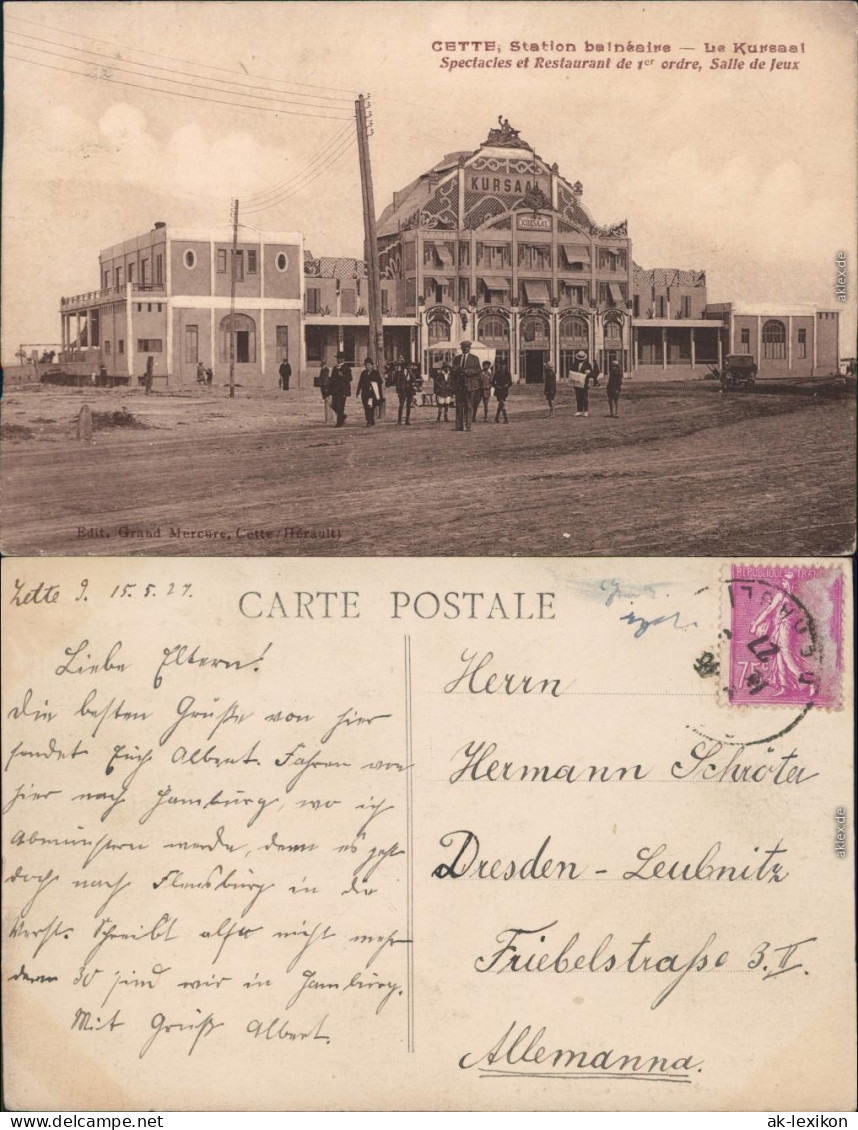 CETTE, Station balnéaire — Le Kursaal
Spectacles et Restaurant de 1er ordre, Salle de Jeux
KURSAAL
Edit. Grand Mercure, Cette (Hérault)
aklex.de
Zette 15.5.27.
CARTE POSTALE
REPUBLIQUE
75c
27
Liebe Eltern!
Die besten Grüße von hier
sendet Euch Albert. Fahren von
hier nach Hamburg, wo ich
Abmustern werde, denn es geht
doch nach Flensburg in die
Werft. Schreibt also nicht mehr
denn 30 sind wir in Hamburg.
Mit Gruß Albert.
Herrn
Hermann Schröter
Dresden - Leubnitz
Friebelstraße 3. II.
Allemanna.
aklex.de
ak-lexikon